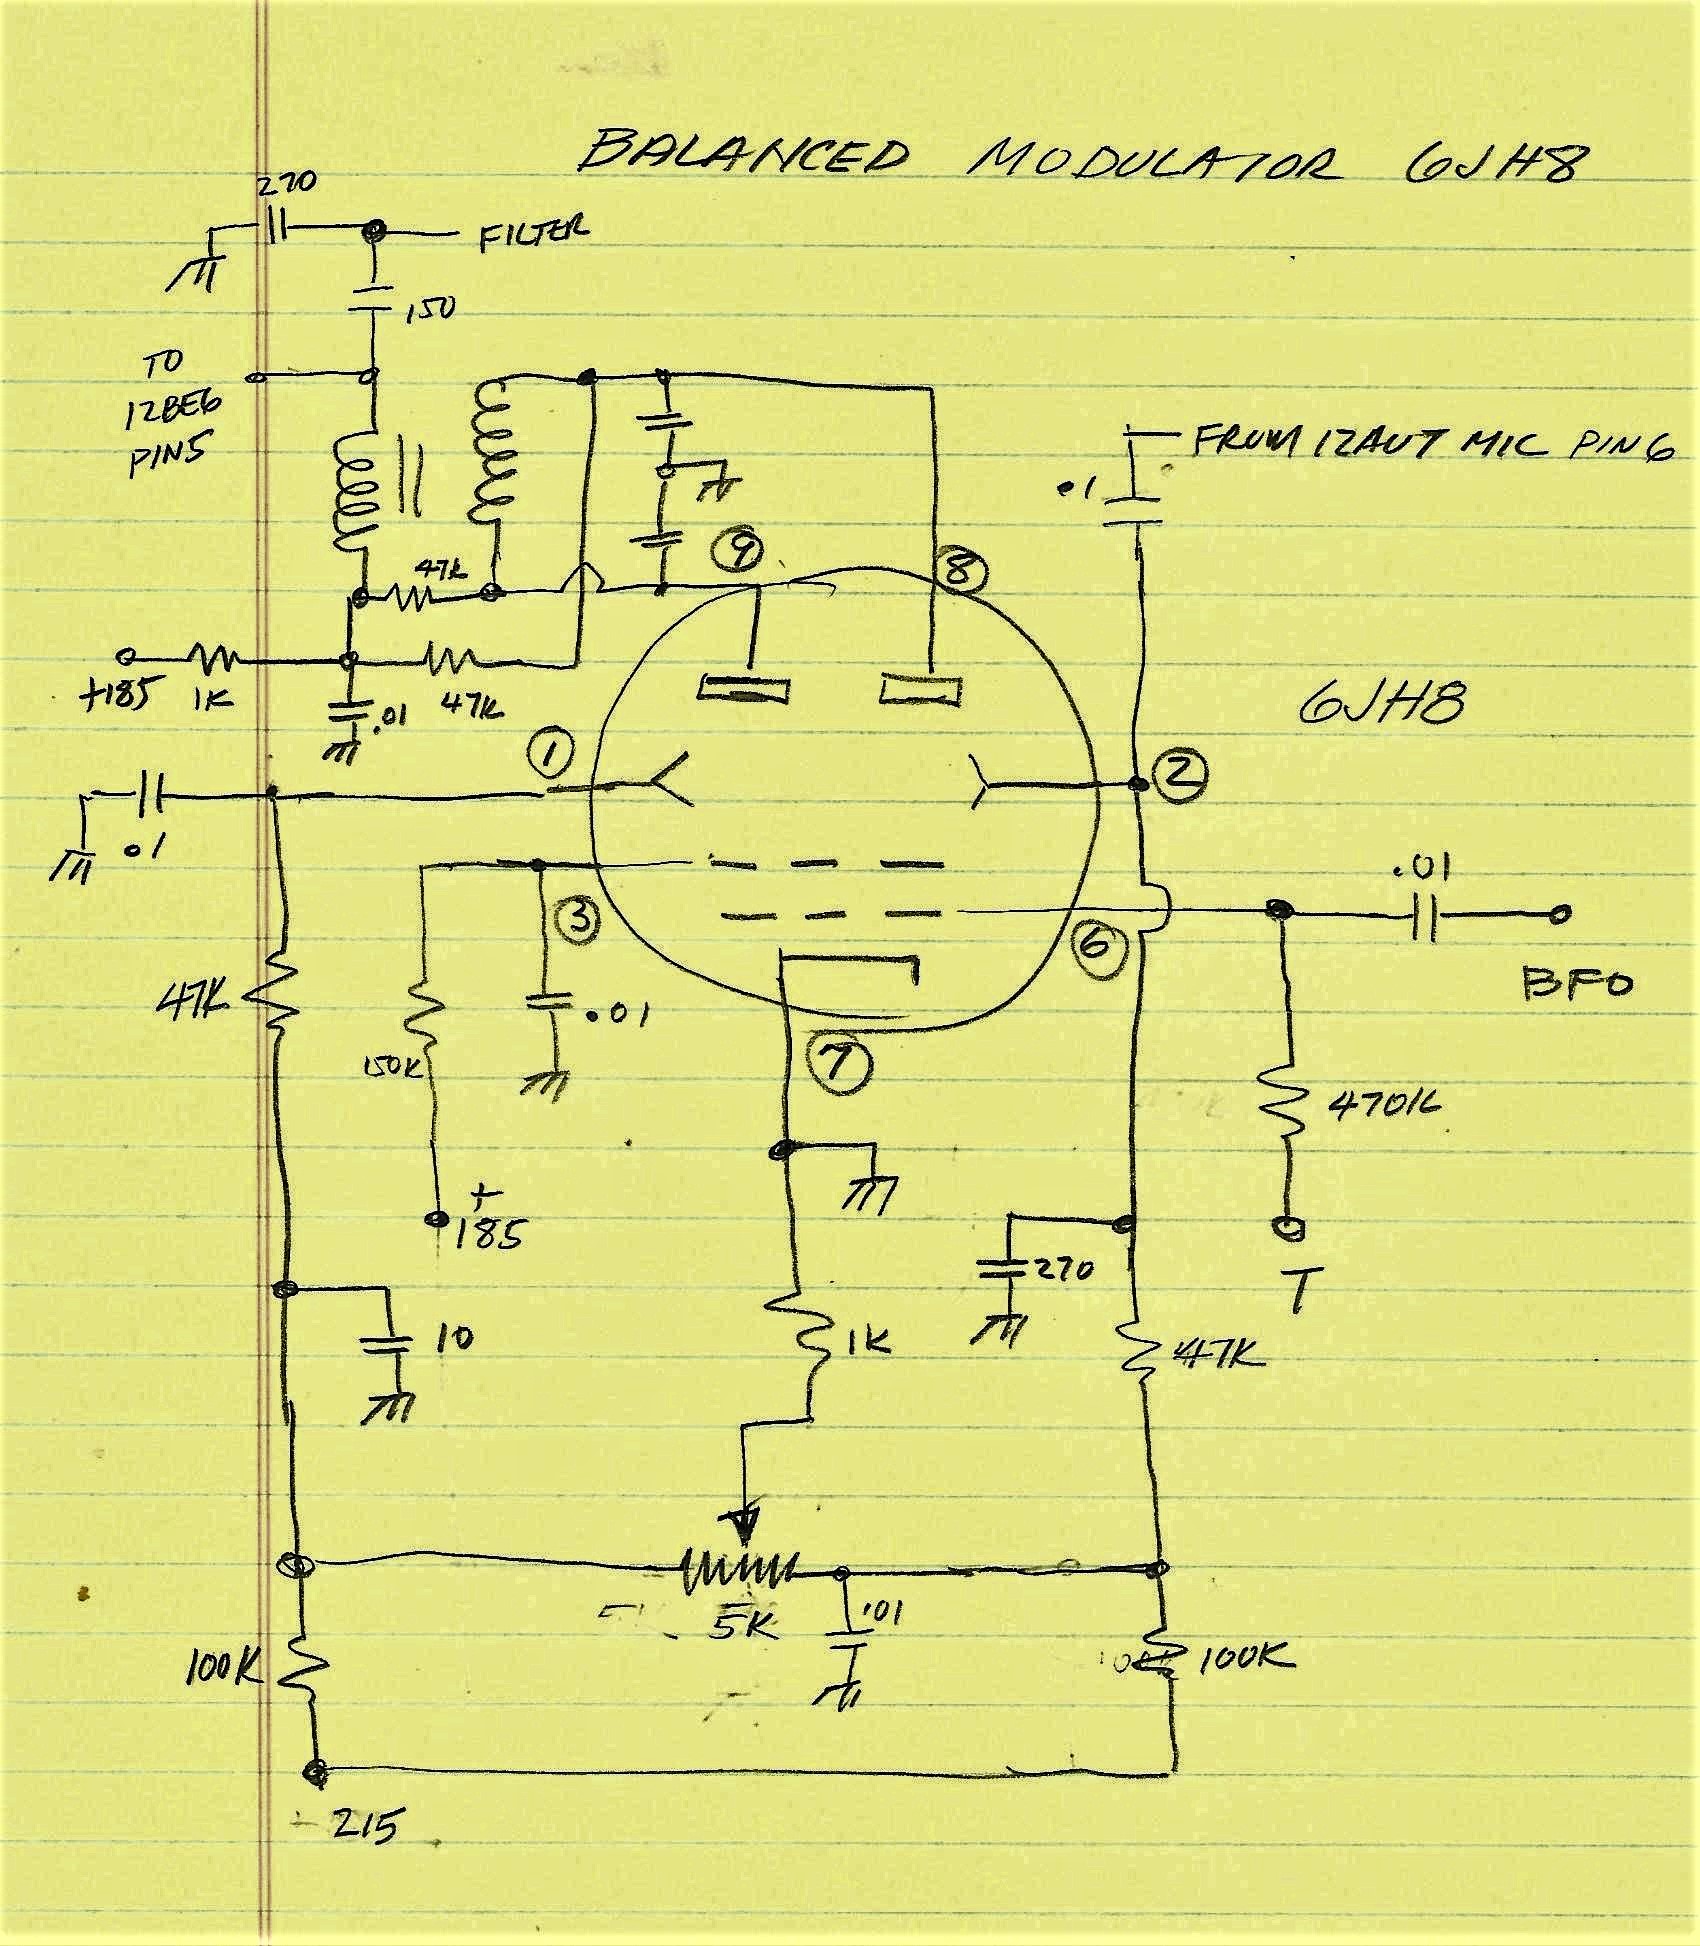 BALANCED MODULATOR 6JH8
270
FILTER
150
TO
12BE6
PIN5
FROM 12AU7 MIC PIN 6
.1
9
8
47K
+185
1K
.01
47K
6JH8
1
2
.1
.01
3
6
BFO
47K
.01
150K
7
470K
+
185
270
T
10
1K
47K
5K
.01
100K
100K
- 215